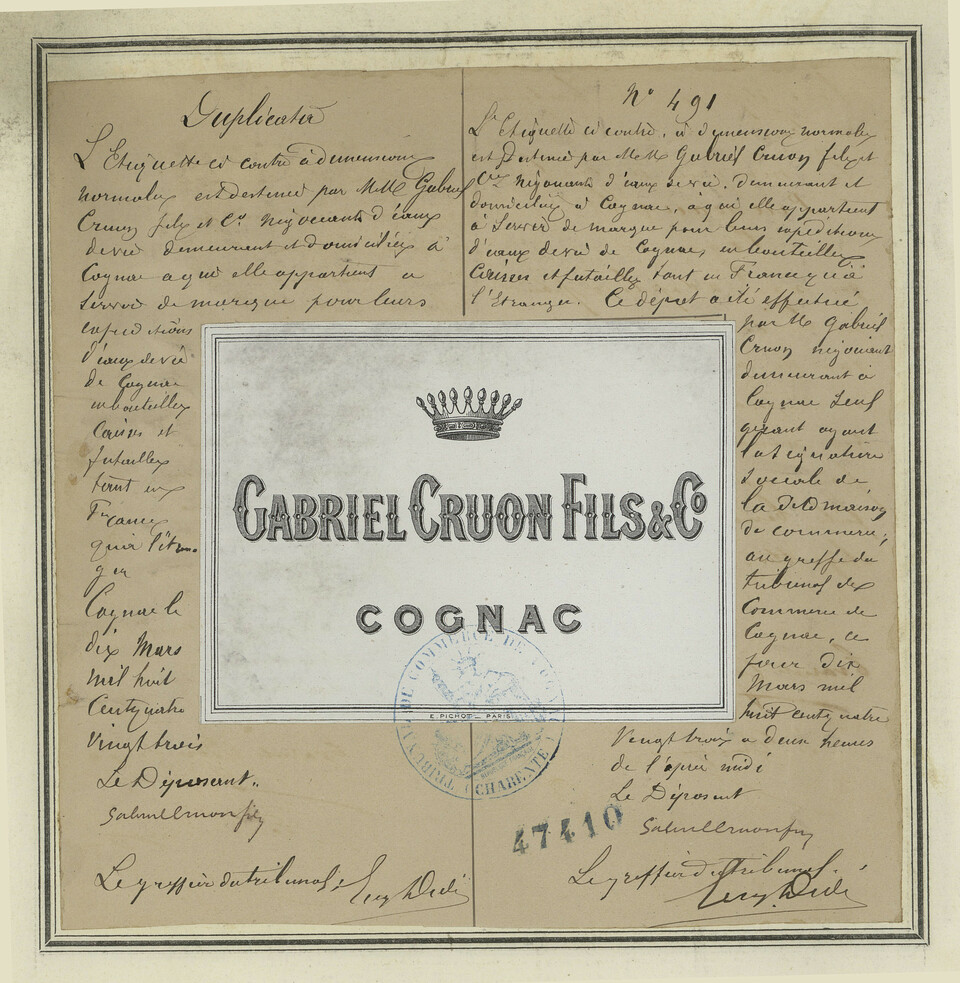 Duplicata
L'Etiquette ci contre à dimensions
normales est destinée par M.M. Gabriel
Cruon fils et Cie Négociants d'eaux
de vie demeurant et domiciliés à
Cognac a qui elle appartient a
Servir de marque pour leurs
expéditions
d'eaux de vie
de Cognac
en bouteilles
Caisses et
futailles
tant en
France
qu'a l'étran
ger
Cognac le
dix Mars
mil huit
Cent quatre
Vingt trois
Le Déposant.
Gabriel Cruon fils
Le greffier du tribunal:
N° 491
L'Etiquette ci contre, à dimensions normales
est Destinée par M.M. Gabriel Cruon fils et
Cie Négociants d'eaux de vie, demeurant et
domiciliés à Cognac, à qui elle appartient
à Servir de marque pour leurs expéditions
d'eaux de vie de Cognac, en bouteilles
Caisses et futailles tant en France qu'à
l'Etranger. Ce dépot a été effectué
par M. Gabriel
Cruon négociant
demeurant à
Cognac Seul
gérant ayant
la signature
sociale de
la dite maison
de commerce,
au greffe du
tribunal de
Commerce de
Cognac, ce
jour dix
Mars mil
huit cent quatre
Vingt trois a deux heures
de l'après midi
Le Déposant
Gabriel Cruon fils
Le greffier du tribunal:
GABRIEL CRUON FILS & Co
COGNAC
E. PICHOT _ PARIS
TRIBUNAL DE COMMERCE DE COGNAC (CHARENTE)
47410